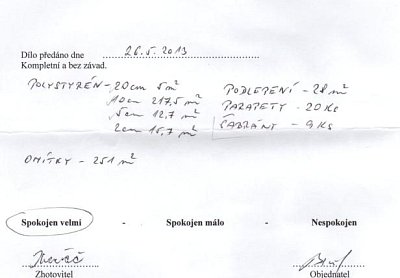 Dílo předáno dne 26.5.2013
Kompletní a bez závad.
POLYSTYRÉN - 20cm 5 m²
10cm 217,5 m²
5cm 12,7 m²
2cm 15,7 m²
PODLEPENÍ - 28 m²
PARAPETY - 20 KS
ŠABRÁNT - 9 KS
OMÍTKY - 251 m²
Spokojen velmí - Spokojen málo - Nespokojen
Zhotovitel Objednatel